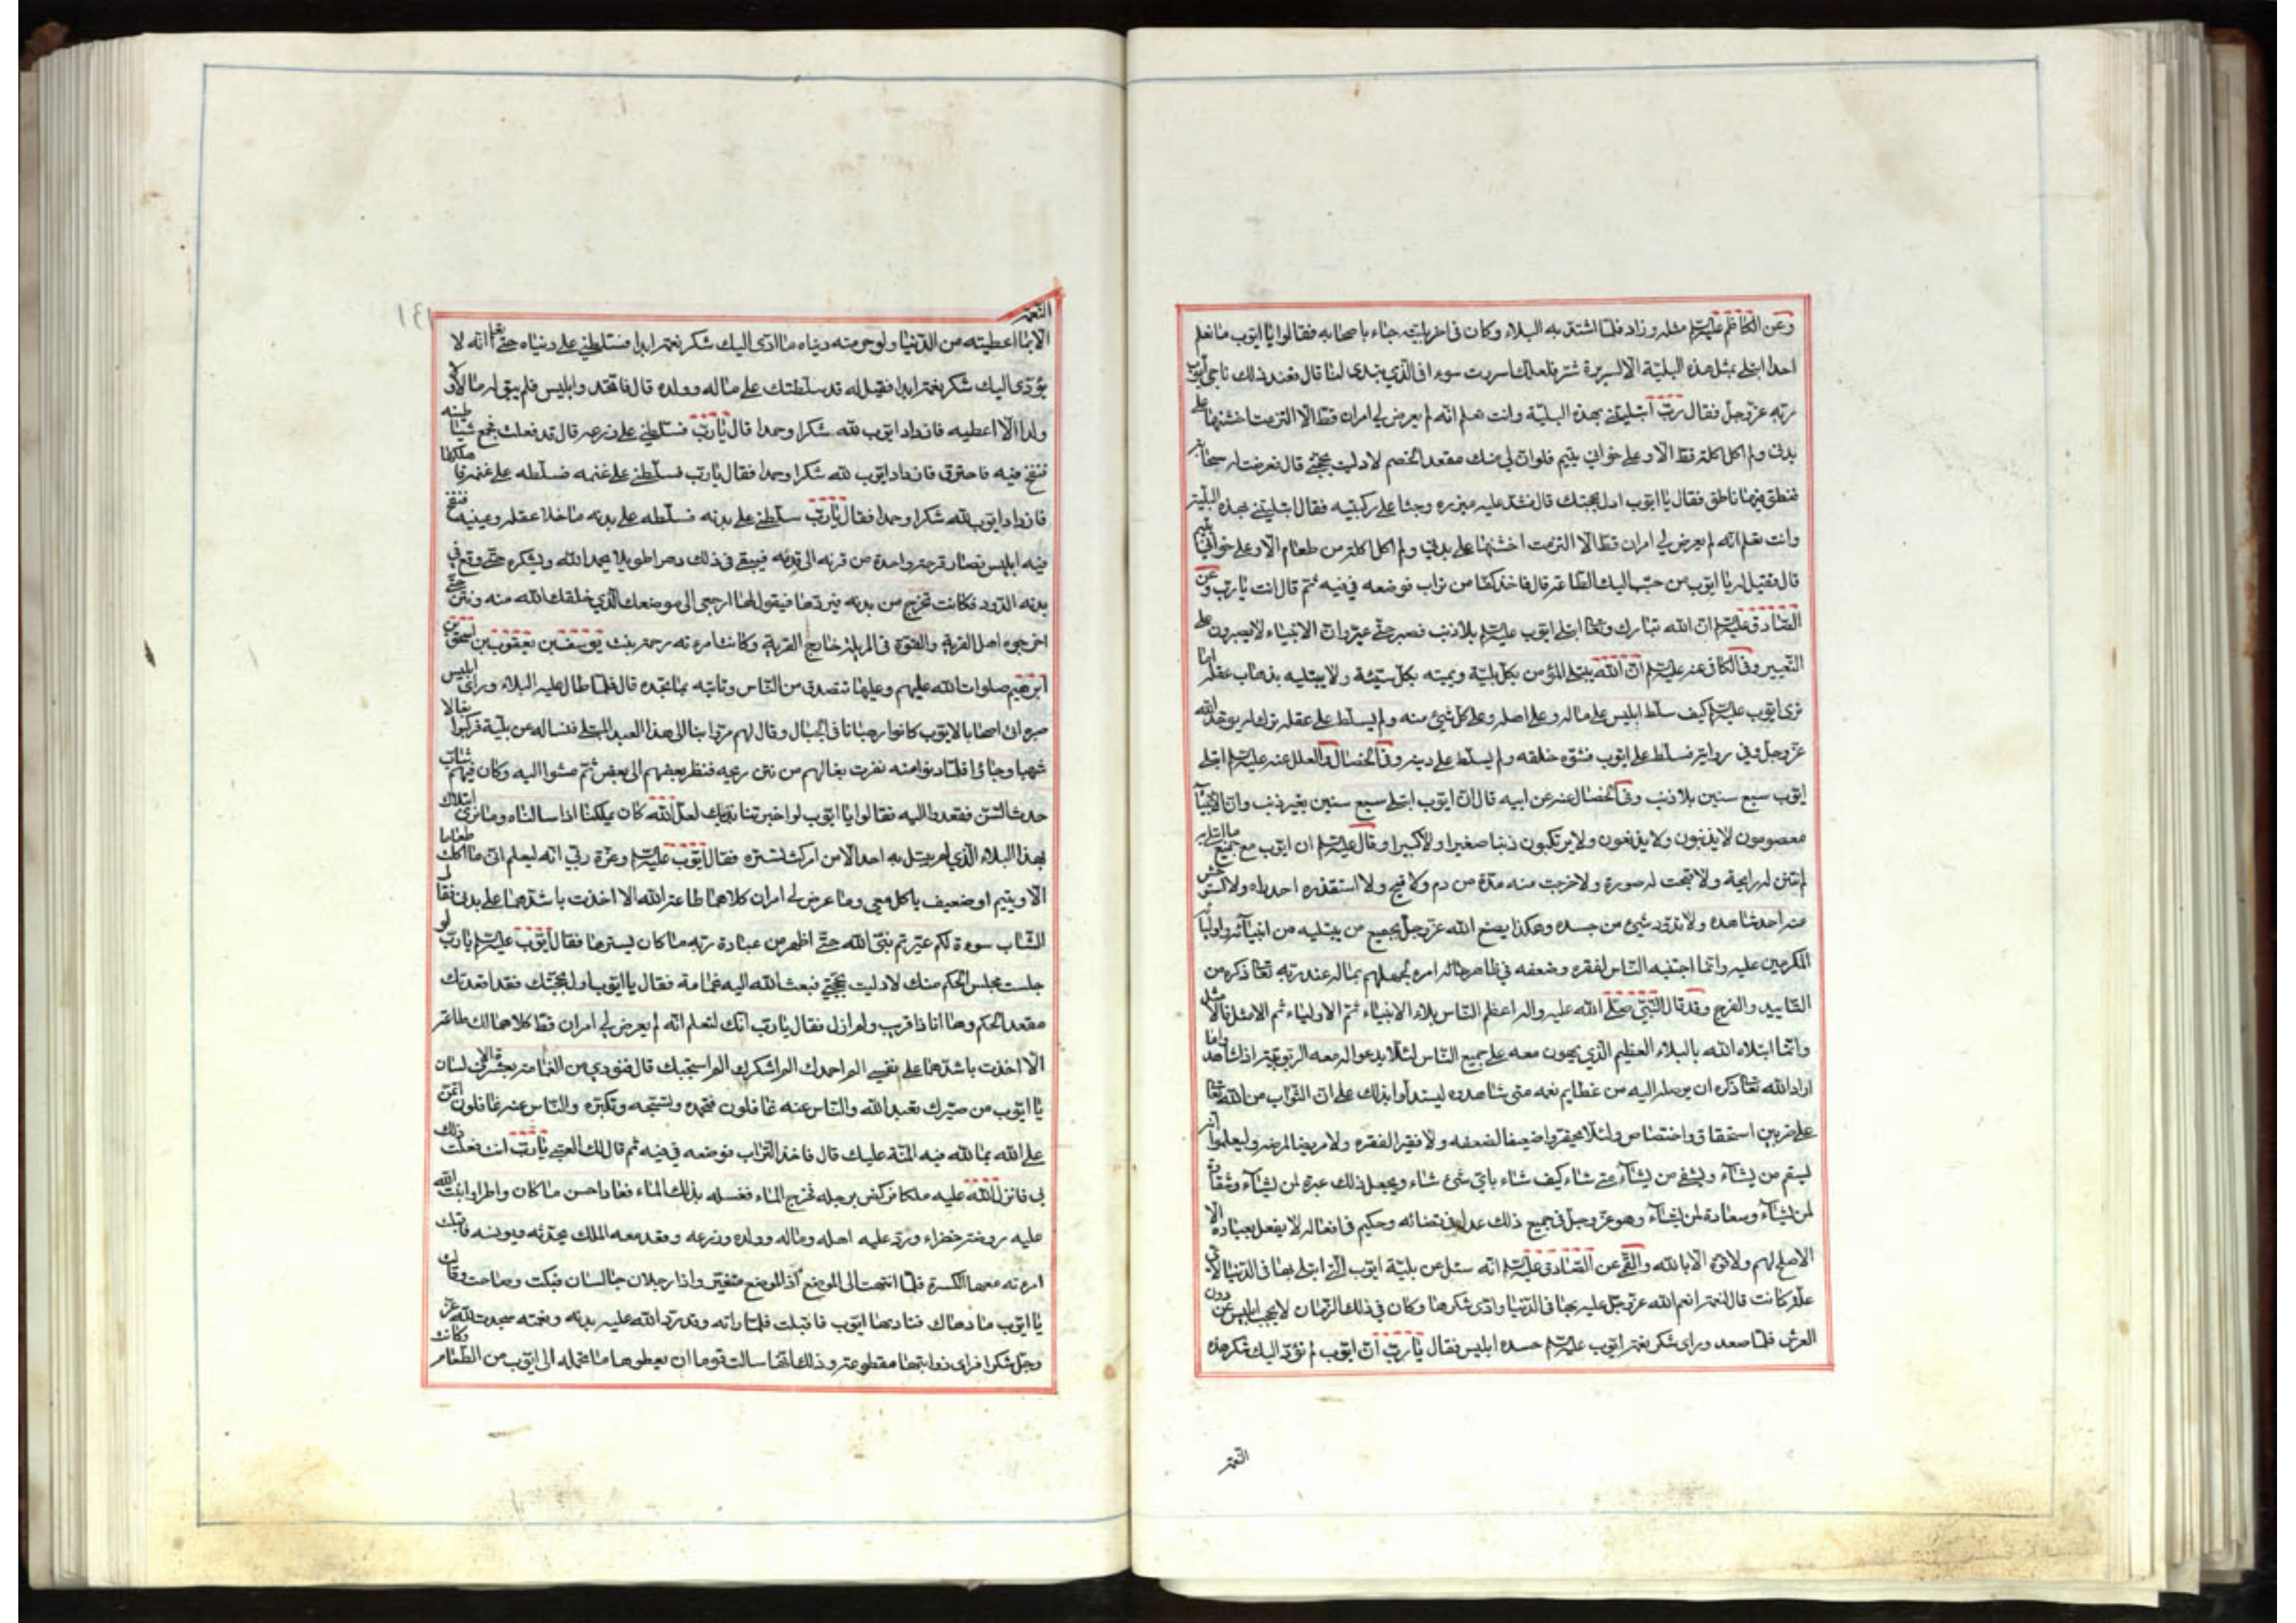 وعن الكاظم عليه السلم مثله وزاد فلما اشتد به البلاء وكان فى اخر بليته جاء اصحابه فقالوا يا ايوب ما نعلم
احدا ابتلى بمثل هذه البلية الا لسريرة شر فلعلك اسررت سوءا فى الذي تبدى لنا قال فعند ذلك ناجى ايوب
ربه عز وجل فقال رب ابتليتنى بهذه البلية وانت تعلم انه لم يعرض لي امران قط الا الزمت اخشنهما على
بدنى ولم اكل اكلة قط الا وعلى خوانى يتيم فلو ان لى منك مقعد الخصم لادليت بحجتى قال فعرضت له سحابة
فنطق فيها ناطق فقال يا ايوب ادل بحجتك قال فشد عليه ميزره وجثا على ركبتيه فقال ابتليتنى بهذه البلية
وانت تعلم انه لم يعرض لي امران قط الا الزمت اخشنهما على بدني ولم اكل اكلة من طعام الا وعلى خوانى يتيم
قال فقيل له يا ايوب من حبب اليك الطاعة قال فاخذ كفا من تراب فوضعه في فيه ثم قال انت يا رب وعن
الصادق عليه السلم ان الله تبارك وتعا ابتلى ايوب عليه السلم بلا ذنب فصبر حتى عير وان الانبياء لا يصبرون على
التعيير وفى الكافى عنه عليه السلم ان الله يبتلى المؤمن بكل بلية ويميته بكل ميتة ولا يبتليه بذهاب عقله اما
ترى ايوب عليه السلم كيف سلط ابليس على ماله وعلى اهله وعلى كل شئ منه ولم يسلط على عقله ترك له يوحد الله
عز وجل وفي رواية فسلط على ايوب فشوه خلقه ولم يسلط على دينه وفى الخصال والعلل عنه عليه السلم ابتلى
ايوب سبع سنين بلا ذنب وفى الخصال عنه عن ابيه قال ان ايوب ابتلى سبع سنين بغير ذنب وان الانبياء
معصومون لا يذنبون ولا يزيغون ولا يرتكبون ذنبا صغيرا ولا كبيرا وقال عليه السلم ان ايوب مع جميع ما ابتلى به
لم تنتن له رايحة ولا قبحت له صورة ولا خرجت منه مدة من دم ولا قيح ولا استقذره احد راه ولا استوحش
منه احد شاهده ولا تدود شئ من جسده وهكذا يصنع الله عز وجل بجميع من يبتليه من انبيائه واوليائه
المكرمين عليه وانما اجتنبه الناس لفقره وضعفه في ظاهر امره لجهلهم بما له عند ربه تعا ذكره من
التاييد والفرج وقد قال النبى صلى الله عليه واله اعظم الناس بلاء الانبياء ثم الاولياء ثم الامثل فالامثل
وانما ابتلاه الله بالبلاء العظيم الذي يهون معه على جميع الناس لئلا يدعوا له معه الربوبية اذا شاهدوا ما
اراد الله تعا ذكره ان يوصله اليه من عظايم نعمه متى شاهدوه ليستدلوا بذلك على ان الثواب من الله تعا
على ضربين استحقاق واختصاص ولئلا يحقروا ضعيفا لضعفه ولا فقيرا لفقره ولا مريضا لمرضه وليعلموا انه
يسقم من يشآء ويشفى من يشآء متى شاء كيف شاء باي شئ شاء ويجعل ذلك عبرة لمن يشآء وشقاوة
لمن يشآء وسعادة لمن يشآء وهو عز وجل فى جميع ذلك عدل فى قضائه وحكيم فى افعاله لا يفعل بعباده الا
الاصلح لهم ولا قوة الا بالله والقمى عن الصادق عليه السلم انه سئل عن بلية ايوب التى ابتلى بها فى الدنيا لاى
علة كانت قال لنعمة انعم الله عز وجل عليه بها فى الدنيا وادى شكرها وكان فى ذلك الزمان لا يحجب ابليس عن دون
العرش فلما صعد وراى شكر نعمة ايوب عليه السلم حسده ابليس فقال يا رب ان ايوب لم يؤد اليك شكر هذه
النعمة
١٣١
النعمة
الا بما اعطيته من الدنيا ولو حرمته دنياه ما ادى اليك شكر نعمة ابدا فسلطنى على دنياه حتى تعلم انه لا
يؤدى اليك شكر نعمة ابدا فقيل له قد سلطتك على ماله وولده قال فانحدر ابليس فلم يبق له مالا ولا
ولدا الا اعطبه فازداد ايوب لله شكرا وحمدا قال يا رب فسلطنى على زرعه قال قد فعلت فجمع شياطينه
فنفخ فيه فاحترق فازداد ايوب لله شكرا وحمدا فقال يا رب فسلطنى على غنمه فسلطه على غنمه فاهلكها
فازداد ايوب لله شكرا وحمدا فقال يا رب سلطنى على بدنه فسلطه على بدنه ما خلا عقله وعينيه فنفخ
فيه ابليس فصار قرحة واحدة من قرنه الى قدمه فبقى فى ذلك دهرا طويلا يحمد الله ويشكره حتى وقع في
بدنه الدود فكانت تخرج من بدنه فيردها فيقول لها ارجعى الى موضعك الذي خلقك الله منه ونتن حتى
اخرجوه اهل القرية والقوه فى المزبلة خارج القرية وكانت امرءته رحمة بنت يوسف بن يعقوب بن اسحق بن
ابرهيم صلوات الله عليهم وعليها تتصدق من الناس وتاتيه بما تجده قال فلما طال عليه البلاء وراى ابليس
صبره اتى اصحابا لايوب كانوا رهبانا فى الجبال وقال لهم مروا بنا الى هذا العبد المبتلى فنساله عن بليته فركبوا بغالا
شهبا وجاؤا فلما دنوا منه نفرت بغالهم من نتن ريحه فنظر بعضهم الى بعض ثم مشوا اليه وكان فيهم شاب
حدث السن فقعدوا اليه فقالوا يا ايوب لو اخبرتنا بذنبك لعل الله كان يهلكنا اذا سالناه وما نرى ابتلاك
بهذا البلاء الذي لم يبتل به احد الا من امر كنت تستره فقال ايوب عليه السلم وعزة ربي انه ليعلم انى ما اكلت طعاما
الا ويتيم او ضعيف ياكل معى وما عرض لى امران كلاهما طاعة الله الا اخذت باشدهما على بدنى فقال
الشاب سوءة لكم عيرتم نبى الله حتى اظهر من عبادة ربه ما كان يسترها فقال ايوب عليه السلم يا رب لو
جلست مجلس الحكم منك لادليت بحجتي فبعث الله اليه غمامة فقال يا ايوب ادل بحجتك فقد اقعدتك
مقعد الحكم وها انا ذا قريب ولم ازل فقال يا رب انك لتعلم انه لم يعرض لي امران قط كلاهما لك طاعة
الا اخذت باشدهما على نفسى الم احمدك الم اشكرك الم اسبحك قال فنودي من الغمامة بعشرة الاف لسان
يا ايوب من صيرك تعبد الله والناس عنه غافلون فتحمده وتسبحه وتكبره والناس عنه غافلون اتمن
على الله بما لله فيه المنة عليك قال فاخذ التراب فوضعه في فيه ثم قال لك العتبى يا رب انت فعلت ذلك
بى فانزل الله عليه ملكا فركض برجله فخرج الماء فغسله بذلك الماء فعاد احسن ما كان واطرا وانبت الله
عليه روضة خضراء ورد عليه اهله وماله وولده وزرعه وقعد معه الملك يحدثه ويونسه فاقبلت
امرءته معها الكسرة فلما انتهت الى الموضع اذا الموضع متغير واذا رجلان جالسان فبكت وصاحت وقالت
يا ايوب ما دهاك فناداها ايوب فاقبلت فلما راته وقد رد الله عليه بدنه ونعمته سجدت لله عز
وجل شكرا فراى ذوابتها مقطوعة وذلك انها سالت قوما ان يعطوها ما تحمله الى ايوب من الطعام وكانت